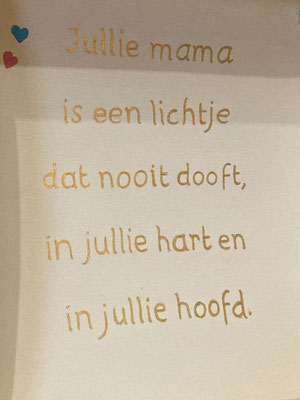 Jullie mama
is een lichtje
dat nooit dooft,
in jullie hart en
in jullie hoofd.